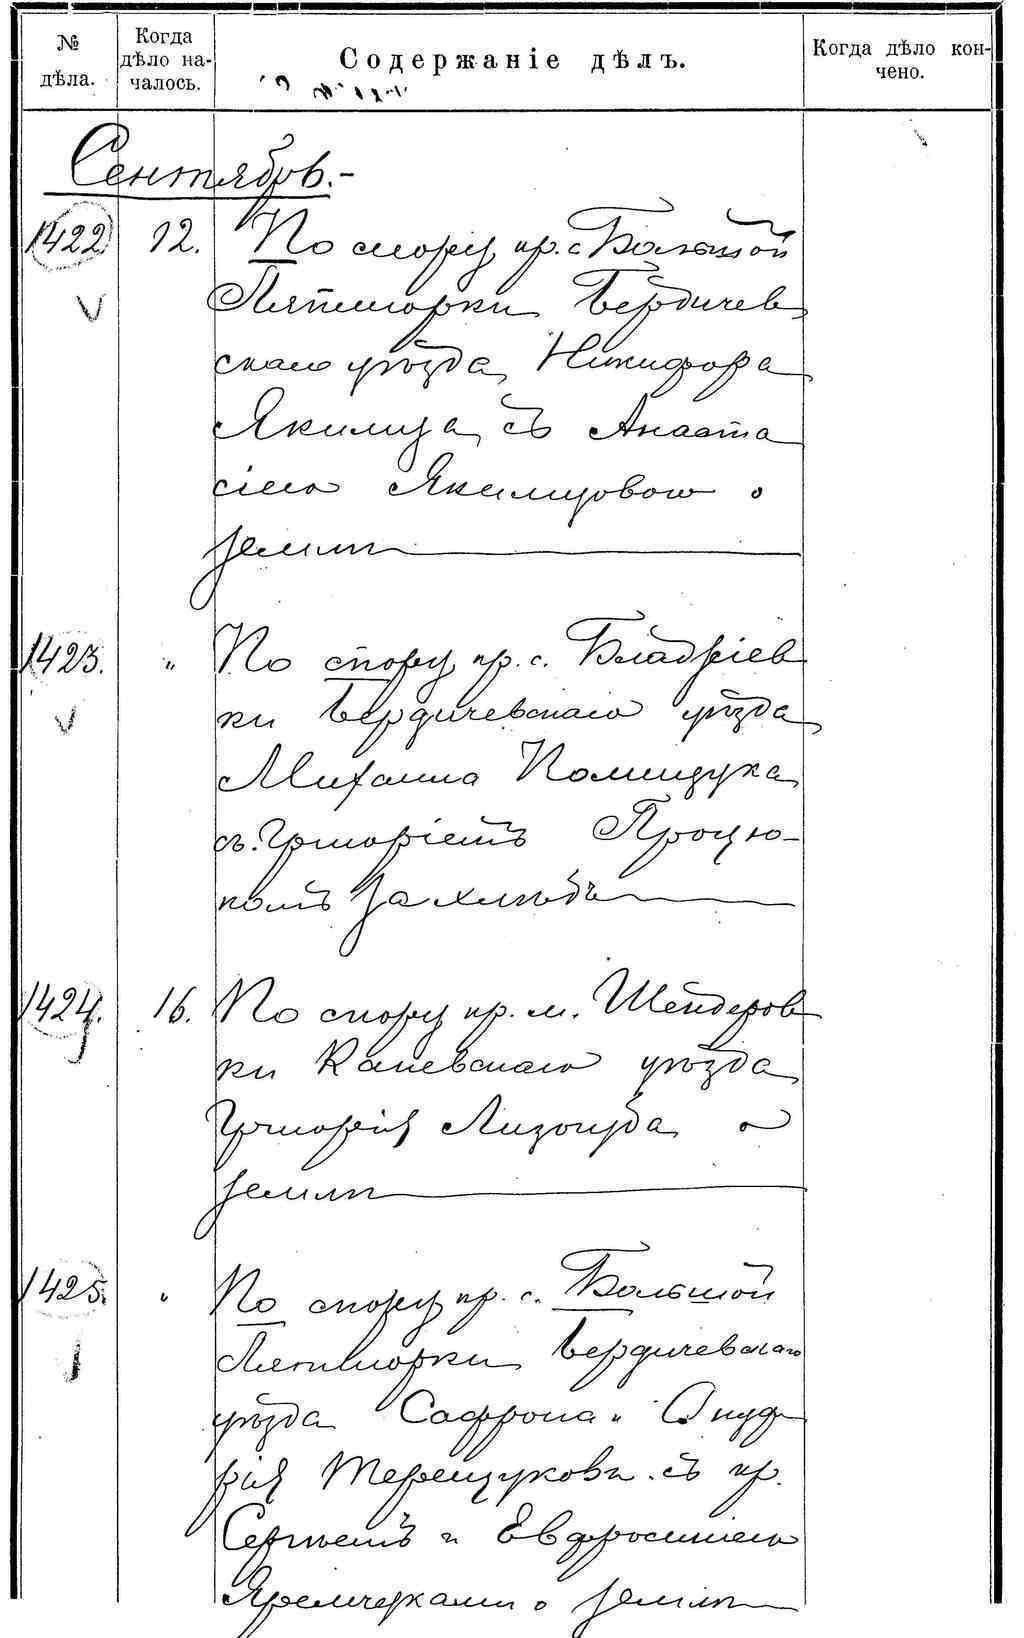 № дѣла.
Когда дѣло на-
чалось.
Содержаніе дѣлъ.
Когда дѣло кон-
чено.
Сентябрь.-
1422 12. По спору кр. с. Большой
Пятигорки Бердичев
скаго уѣзда Никифора
Якимца съ Анаста
сіею Якимцовою о
землѣ
1423. " По спору кр. с.
ки Бердичевскаго уѣзда
Михаила Полищука
съ Григоріемъ Процю-
комъ за хлѣбъ
1424. 16. По спору кр. м. Шендеров
ки Каневскаго уѣзда
Григорія Лизогуба о
землѣ
1425. " По спору кр. с. Большой
Пятигорки Бердичевскаго
уѣзда Сафрона и Онуф
рія Терещуковы съ кр.
Сергѣемъ и Евфросиніею
Яремчуками о землѣ